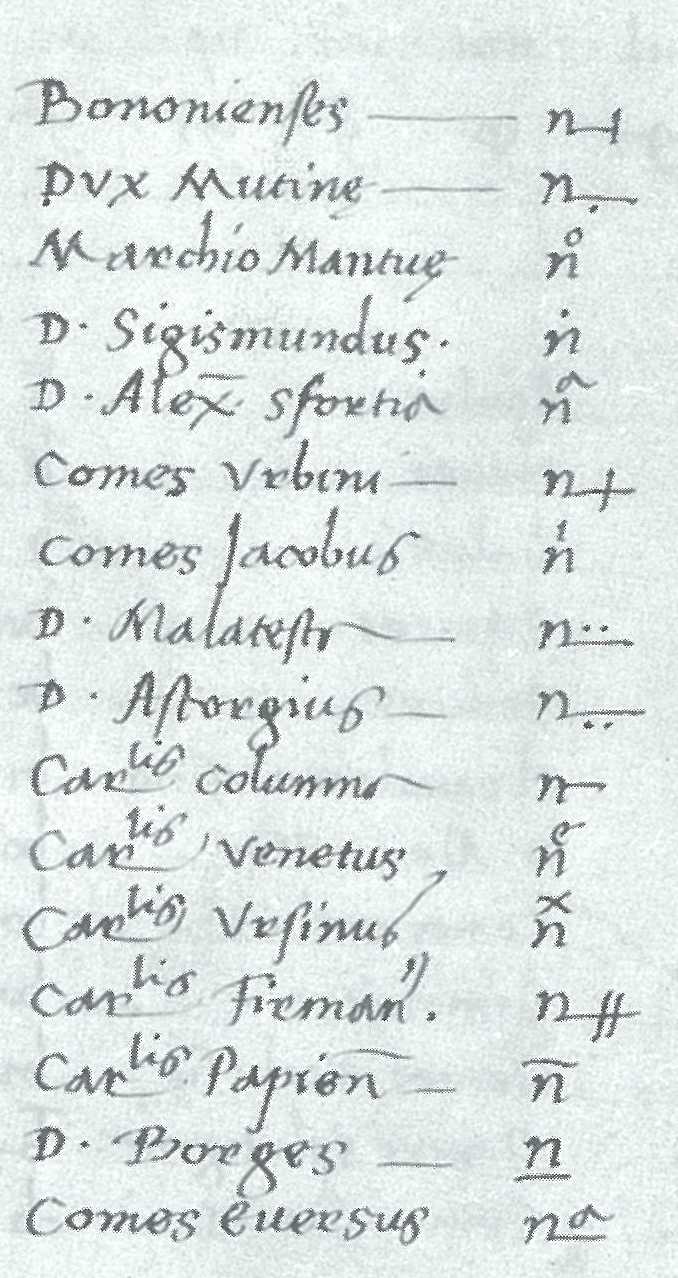 Bononienses — n
Dux Mutine — n
Marchio Mantue n°
D. Sigismundus. ṅ
D. Alex̄. Sfortia nᵃ
Comes Urbini — n+
Comes Jacobus nˡ
D. Malatesta — n..
D. Astorgius — n..
Carˡⁱˢ Columna n-
Carˡⁱˢ Venetus nᵉ
Carˡⁱˢ Ursinus nˣ
Carˡⁱˢ Firman". n
Carˡⁱˢ Papien̄ — n̄
D. Borges — n̲
Comes Euersus nᵃ